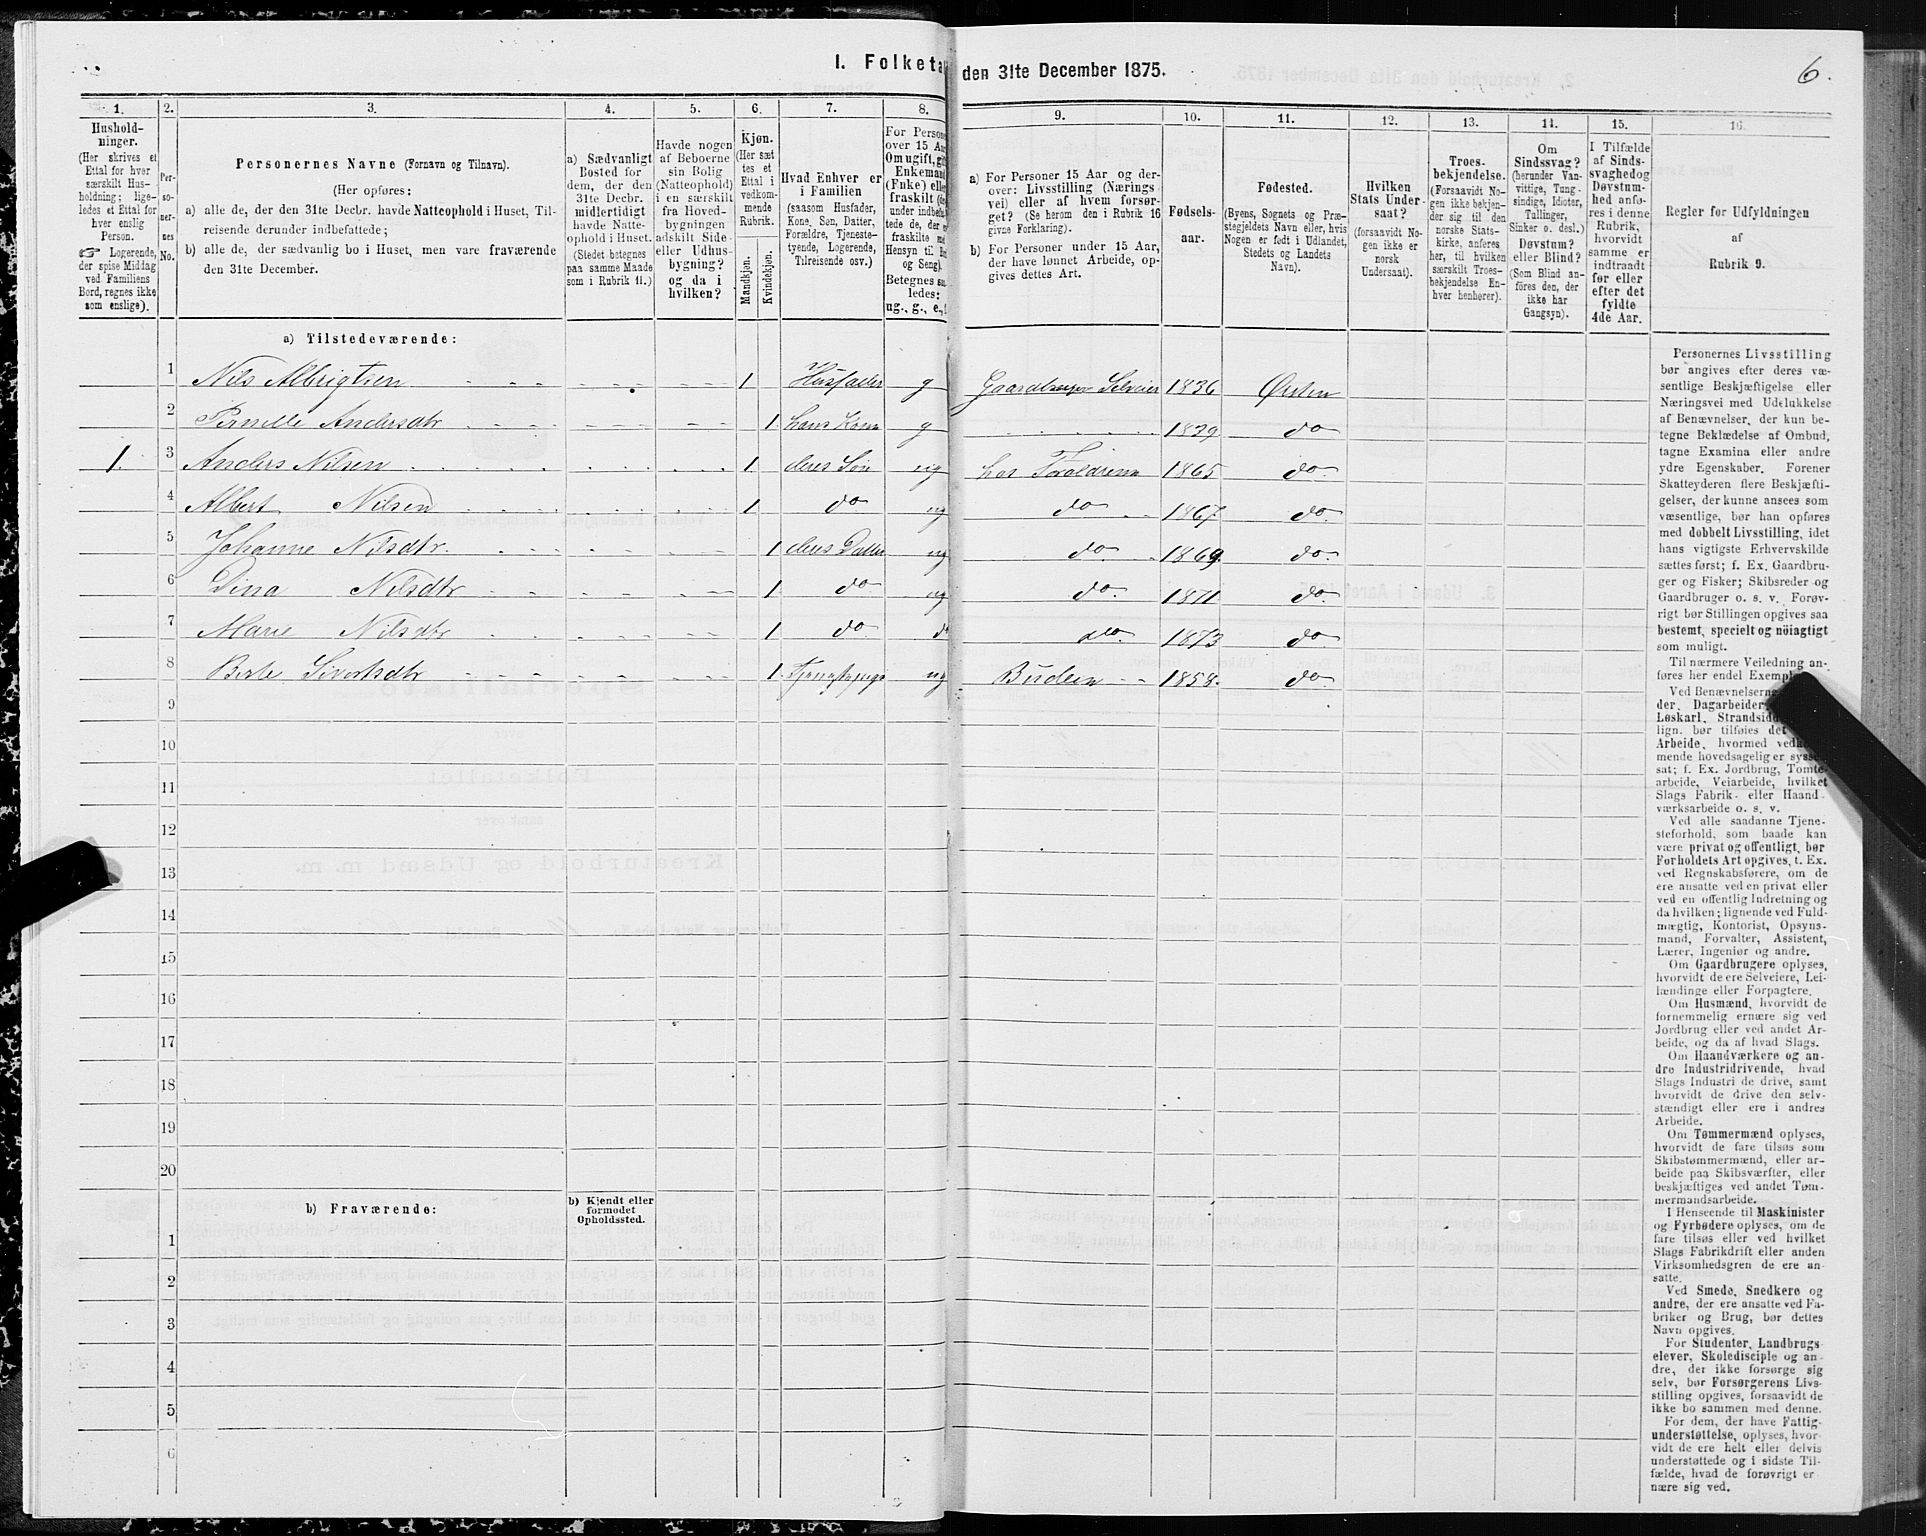 I. Folketal den 31te December 1875.
6.
1. 2. 3. 4. 5. 6. 7. 8. 9. 10. 11. 12. 13. 14. 15. 16.
Hushold-
ninger.
(Her skrives et
Ettal for hver
særskilt Hus-
holdning; lige-
ledes et Ettal for
hver enslig
Person.
☞ Logerende,
der spise Middag
ved Familiens
Bord, regnes ikke
som enslige).
Per-
so-
ner-
nes
No.
Personernes Navne (Fornavn og Tilnavn).
(Her opføres:
a) alle de, der den 31te Decbr. havde Natteophold i Huset, Til-
reisende derunder indbefattede;
b) alle de, der sædvanlig bo i Huset, men vare fraværende
den 31te December.
a) Sædvanligt
Bosted for
dem, der den
31te Decbr.
midlertidigt
havde Natte-
ophold i Huset.
(Stedet betegnes
paa samme Maade
som i Rubrik 11.)
Havde nogen
af Beboerne
sin Bolig
(Natteophold)
i en særskilt
fra Hoved-
bygningen
adskilt Side-
eller Udhus-
bygning?
og da i
hvilken?
Kjøn.
(Her sæt
tes et
Ettal i
vedkom-
mende
Rubrik.
Mandkjøn.
Kvindekjøn.
Hvad Enhver er
i Familien
(saasom Husfader,
Kone, Søn, Datter,
Forældre, Tjeneste-
tyende, Logerende,
Tilreisende osv.)
For Persone
over 15 Aar
Om ugift, gift
Enkemand
(Enke) elle
fraskilt (de
under indbefa
tede de, der e
fraskilte me
Hensyn til Bo
og Seng).
Betegnes saa
ledes:
ug., g., e., f
a) For Personer 15 Aar og der-
over: Livsstilling (Nærings
vei) eller af hvem forsør-
get? (Se herom den i Rubrik 16
givne Forklaring).
b) For Personer under 15 Aar,
der have lønnet Arbeide, op-
gives dettes Art.
Fødsels-
aar.
Fødested.
(Byens, Sognets og Præ-
stegjeldets Navn eller, hvis
Nogen er født i Udlandet,
Stedets og Landets
Navn).
Hvilken
Stats Under-
saat?
(forsaavidt No-
gen ikke er
norsk
Undersaat).
Troes-
bekjendelse.
(Forsaavidt No-
gen ikke bekjen-
der sig til den
norske Stats-
kirke, anføres
her, til hvilken
særskilt Troes-
bekjendelse En-
hver henhører).
Om
Sindssvag?
(herunder Van-
vittige, Tung-
sindige, Idioter,
Tullinger,
Sinker o. desl.)
Døvstum?
eller Blind?
(Som Blind an-
føres den, der
ikke har
Gangsyn).
I Tilfælde
af Sinds-
svaghed og
Døvstum-
hed anfø-
res i denne
Rubrik,
hvorvidt
samme er
indtraadt
før eller
efter det
fyldte
4de Aar.
Regler før Udfyldningen
af
Rubrik 9.
a) Tilstedeværende:
1 Nils Albrigtsen 1 Husfader g Gaardbruger Selveier 1836 Ørsten
2 Pernille Andersdtr 1 hans Kone g 1829 do
1. 3 Anders Nilsen 1 deres Søn ug hos Forældrene 1865 do.
4 Albert Nilsen 1 do ug do 1867 do.
5 Johanne Nilsdtr. 1 deres Datter ug do. 1869. do.
6 Dina Nilsdtr 1 do. ug do. 1871 do.
7 Marie Nilsdtr 1 do do. 1873 do
8 Berte Sivertsdtr 1 ug Budeie 1858. do.
9
10
11
12
13
14
15
16
17
18
19
20
b) Fraværende:
b) Kjendt eller
formodet
Opholdssted.
1
2
3
4
5
6
Personernes Livsstilling
bør angives efter deres væ-
sentlige Beskjæftigelse eller
Næringsvei med Udelukkelse
af Benævnelser, der kun be-
tegne Beklædelse af Ombud,
tagne Examina eller andre
ydre Egenskaber. Forener
Skatteyderen flere Beskjæfti-
gelser, der kunne ansees som
væsentlige, bør han opføres
med dobbelt Livsstilling, idet
hans vigtigste Erhvervskilde
sættes først; f. Ex. Gaardbru-
ger og Fisker; Skibsreder og
Gaardbruger o. s. v. Forøv-
rigt bør Stillingen opgives saa
bestemt, specielt og nöiagtigt
som muligt.
Til nærmere Veiledning an-
føres her endel Exempl
Ved Benævnelserne
der, Dagarbeider,
Løskarl, Strandsidd
lign. bør tilføies det
Arbeide, hvormed vedkom-
mende hovedsagelig er syssel-
sat; f. Ex. Jordbrug, Tomte-
arbeide, Veiarbeide, hvilket
Slags Fabrik- eller Haand-
værksarbeide o. s. v.
Ved alle saadanne Tjene-
steforhold, som baade kan
være privat og offentligt, bør
Forholdets Art opgives, t. Ex.
ved Regnskabsførere, om de
ere ansatte ved en privat eller
ved en offentlig Indretning og
da hvilken; lignende ved Fuld-
mægtig, Kontorist, Opsyns-
mand, Forvalter, Assistent,
Lærer, Ingeniør og andre.
Om Gaardbrugere oplyses,
hvorvidt de ere Selveiere, Lei-
lændinge eller Forpagtere.
Om Husmænd, hvorvidt de
fornemmelig ernære sig ved
Jordbrug eller ved andet Ar-
beide, og da af hvad Slags.
Om Haandværkere og an-
dre Industridrivende, hvad
Slags Industri de drive, samt
hvorvidt de drive den selv-
stændigt eller ere i andres
Arbeide.
Om Tømmermænd oplyses,
hvorvidt de fare tilsøs som
Skibstømmermænd, eller ar-
beide paa Skibsværfter, eller
beskjæftiges ved andet Tøm-
mermandsarbeide.
I Henseende til Maskinister
og Fyrbødere oplyses, om de
fare tilsøs eller ved hvilket
Slags Fabrikdrift eller anden
Virksomhedsgren de ere an-
satte.
Ved Smede, Snedkere og
andre, der ere ansatte ved Fa-
briker og Brug, bør dettes
Navn opgives.
For Studenter, Landbrugs-
elever, Skoledisciple og an-
dre, der ikke forsørge sig
selv, bør Forsørgerens Livs-
stilling opgives, forsaavidt de
ikke bo sammen med denne.
For dem, der have Fattig-
understøttelse, oplyses, hvor-
vidt de ere helt eller delvis
understøttede og i sidste Til-
fælde, hvad de forøvrigt er
nære sig ved.